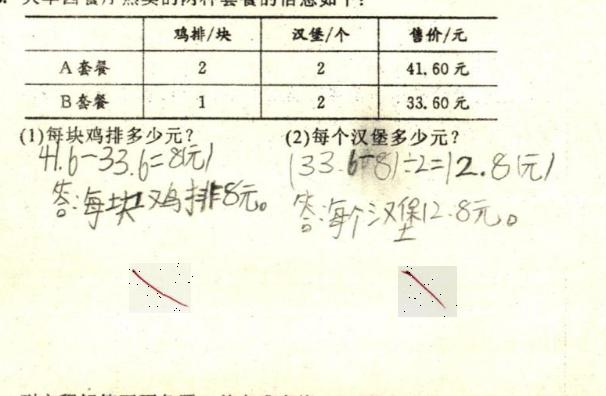 鸡排/块 汉堡/个 售价/元
A套餐 2 2 41.60元
B套餐 1 2 33.60元
(1)每块鸡排多少元? (2)每个汉堡多少元?
41.6-33.6=8(元) (33.6-8)÷2=12.8(元)
答:每块鸡排8元。 答:每个汉堡12.8元。